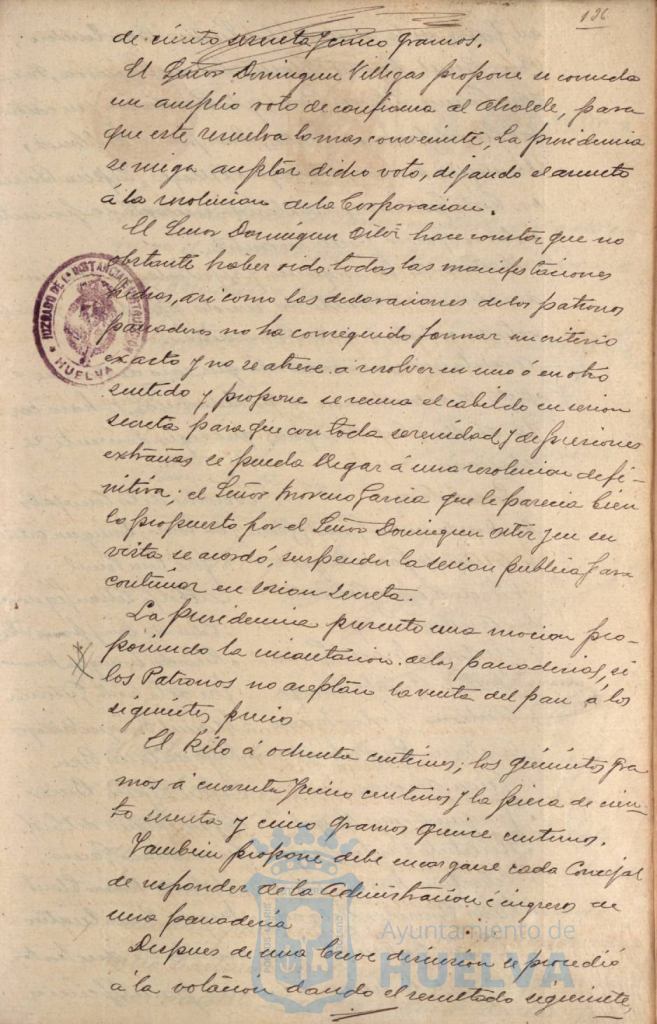 126
de ciento sesenta y cinco gramos.
El Señor Dominguez Villegas propone se conceda
un amplio voto de confianza al Alcalde, para
que este resuelva lo mas conveniente, la presidencia
se niega aceptar dicho voto, dejando el asunto
á la resolucion de la Corporacion.
El Señor Dominguez hace constar que no
obstante haber oido todas las manifestaciones
dichas, asi como las declaraciones de los patronos
panaderos no ha conseguido formar un criterio
exacto y no se atreve á resolver en uno ó en otro
sentido y propone se reuna el cabildo en sesion
secreta para que con toda serenidad y de presiones
extrañas se pueda llegar á una resolucion defi-
nitiva; el Señor Moreno Garcia que le parecia bien
lo propuesto por el Señor Dominguez y en su
vista se acordó, suspender la sesion publica para
continuar en sesion secreta.
La presidencia presento una mocion pro-
poniendo la incautacion de las panaderias, si
los Patronos no aceptan la venta del pan á los
siguientes precio
El Kilo á ochenta centimos; los quinientos gra
mos á cuarenta y cinco centimos y la pieza de cien-
to sesenta y cinco gramos quince centimos.
Tambien propone debe encargarse cada Concejal
de responder de la administracion é ingresos de
una panaderia
Despues de una breve discusion se procedió
á la votacion dando el resultado siguiente,
JUZGADO DE 1ª INSTANCIA É INSTRUCCION
HUELVA
Ayuntamiento de
HUELVA